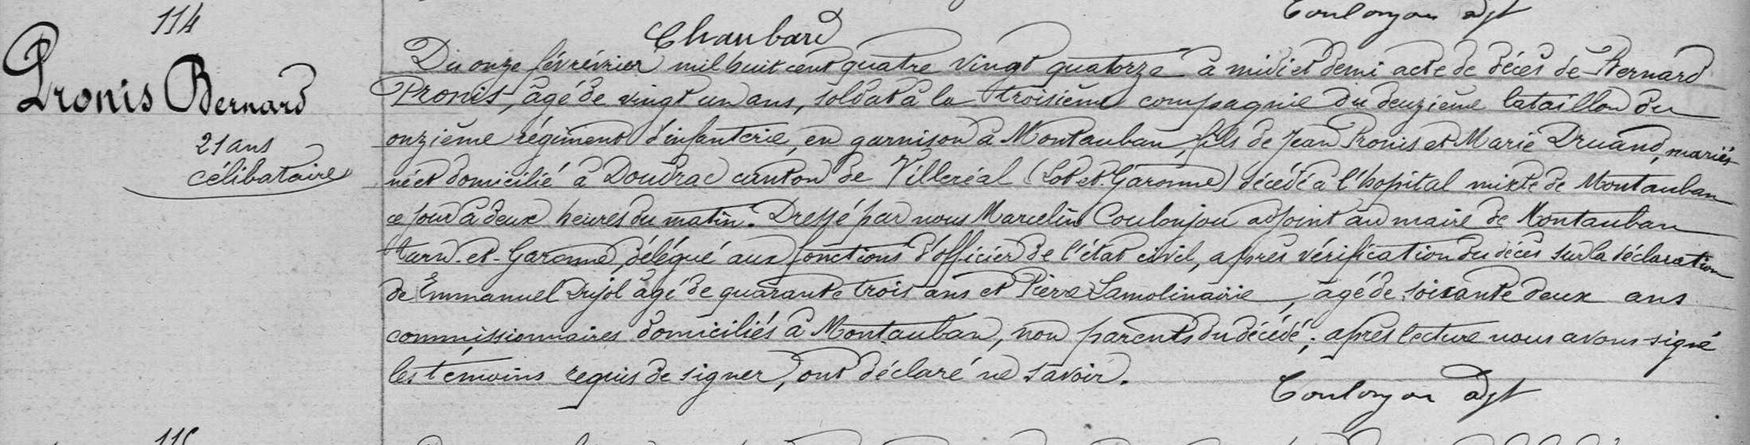 Coulonjou adjt
Chaubard
114
Pronis Bernard
21 ans
célibataire
Du onze févrévrier mil huit cent quatre vingt quatorze à midi et demi acte de décès de Bernard
Pronis, âgé de vingt un ans, soldat à la troisième compagnie du deuzième bataillon du
onzième régiment d'infanterie, en garnison à Montauban, fils de Jean Pronis et Marie Druand, mariés
né et domicilié à Doudrac canton de Villeréal (Lot-et-Garonne) décédé à l'hopital mixte de Montauban
ce jour à deux heures du matin. Dressé par nous Marcelin Coulonjou adjoint au maire de Montauban
Tarn-et-Garonne, délégué aux fonctions d'officier de l'état civil, après vérification du décès sur la déclaration
de Emmanuel Dujol âgé de quarante trois ans et Pierre Lamolinairie, âgé de soixante deux ans
commissionnaires domiciliés à Montauban, non parents du décédé; après lecture nous avons signé
les témoins requis de signer, ont déclaré ne savoir.
Coulonjou adjt